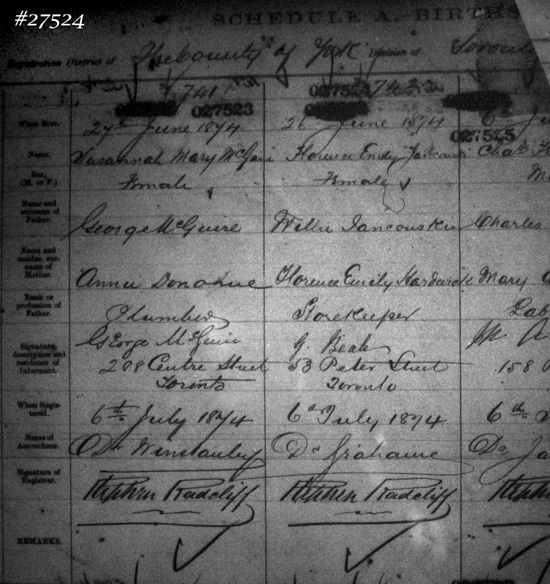 #27524
SCHEDULE A.—BIRTHS
Registration District of The County of York Division of Toronto
741 742
027523 027524 027525
When Born. 27th June 1874 26 June 1874 6th Ju
Name. Susannah Mary McGuire Florence Emily Chas
Sex, (M. or F.) Female Female
Name and surname of Father. George McGuire Willie Jancouskie Charles
Name and maiden surname of Mother. Annie Donohue Florence Emily Hardwick Mary
Rank or profession of Father. Plumber Storekeeper Lab
Signature, description and residence of Informant. George McGuire G. Beale
208 Centre Street 53 Peter Street 158
Toronto Toronto
When Registered. 6th July 1874 6th July 1874 6th
Name of Accoucheur. Dr Winstanley Dr Grahame Dr
Signature of Registrar. Stephen Radcliff Stephen Radcliff Stephen
REMARKS.